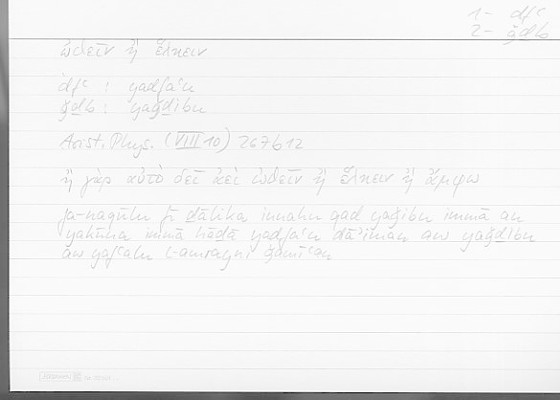 1- dfʿ
2- ǧḏb
ὠθεῖν ἢ ἕλκειν
dfʿ : yadfaʿu
ǧḏb : yaǧḏibu
Arist. Phys. (VIII 10) 267b12
ἢ γὰρ αὐτὸ δεῖ ἀεὶ ὠθεῖν ἢ ἕλκειν ἢ ἄμφω
fa-naqūlu fī ḏālika innahu qad yaǧibu immā an
yakūna immā hāḏā yadfaʿu dāʾiman aw yaǧḏibu
aw yafʿalu l-amrayni ǧamīʿan